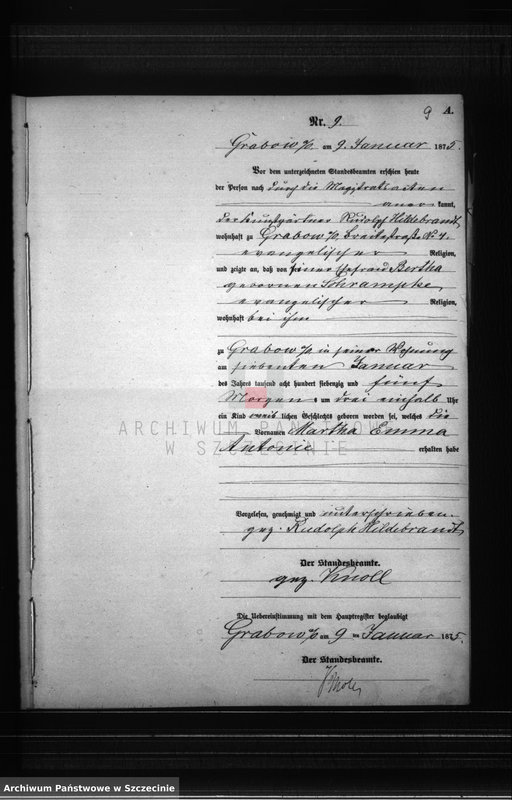 9 A.
Nr. 9.
Grabow a/O. am 9. Januar 1875.
Vor dem unterzeichneten Standesbeamten erschien heute
der Person nach durch die Magistratsacten
aner kannt,
der Kunstgärtner Rudolph Hildebrandt
wohnhaft zu Grabow a/O, Breitestraße No 4.
evangelischer Religion,
und zeigte an, daß von seiner Ehefrau Bertha
geborenen Schrampke
evangelischer Religion,
wohnhaft bei ihm
zu Grabow a/O in seiner Wohnung
am siebenten Januar
des Jahres tausend acht hundert siebenzig und fünf
Morgens um drei einhalb Uhr
ein Kind weib lichen Geschlechts geboren worden sei, welches die
Vornamen Martha Emma
Antonie erhalten habe
ARCHIWUM PAŃSTWOWE
W SZCZECINIE
Vorgelesen, genehmigt und unterschrieben.
gez. Rudolph Hildebrandt
Der Standesbeamte.
gez. Knoll
Die Uebereinstimmung mit dem Hauptregister beglaubigt
Grabow a/O am 9 ten Januar 1875.
Der Standesbeamte.
Archiwum Państwowe w Szczecinie